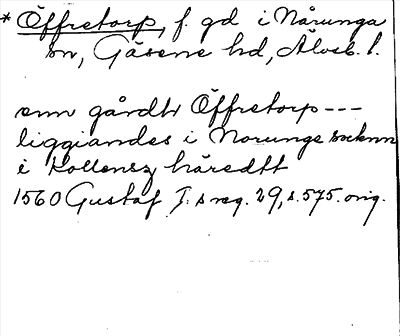 * Öffretorp, f. gd i Nårunga
sn, Gäsene hd, Älvsb. l.
enn gårdh Öffretorp ---
liggiandes i Norunge socknn
i Kollensz häredtt
1560 Gustaf I:s reg. 29, s. 575. orig.